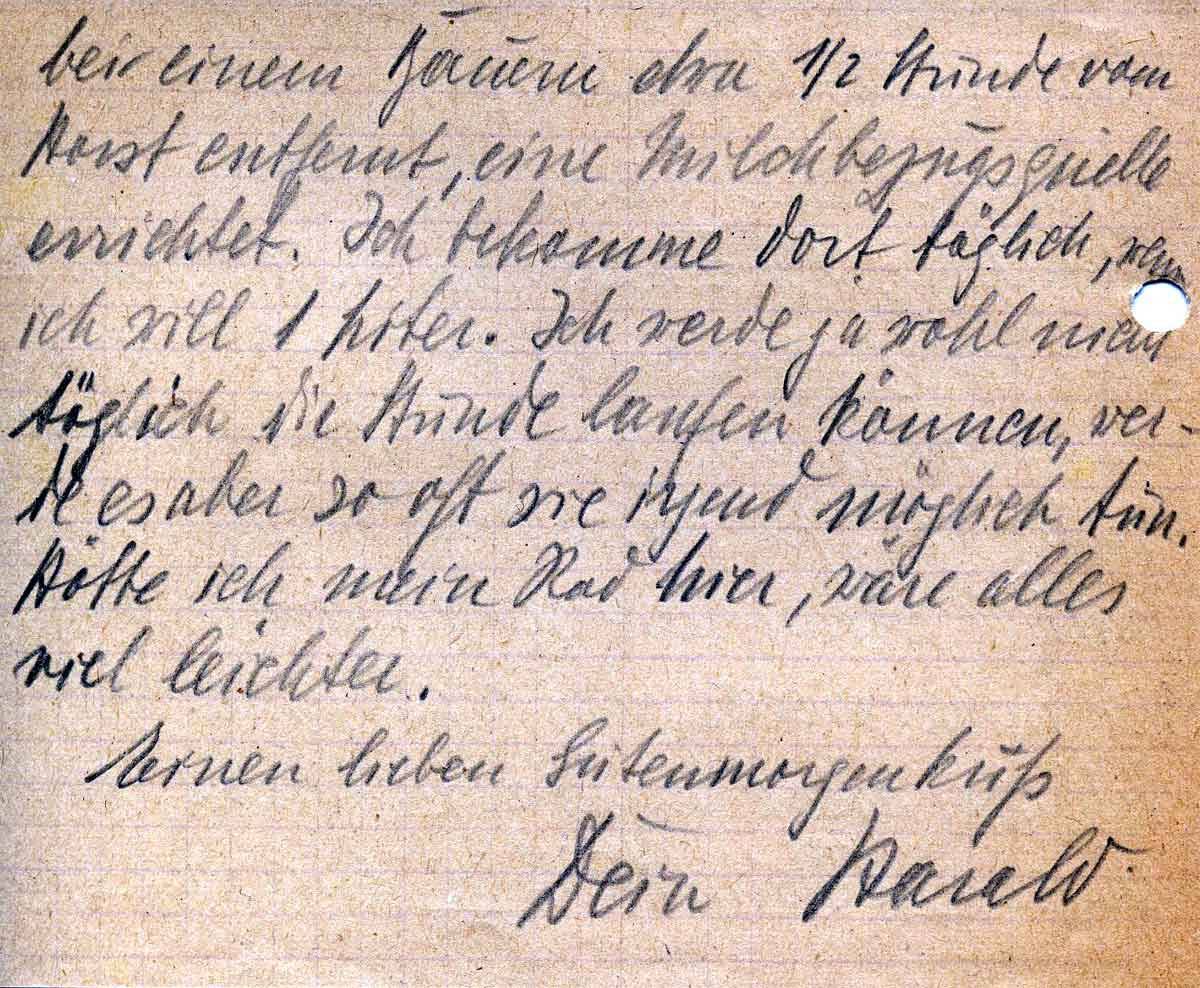 bei einem Bauern etwa 1/2 Stunde vom
Horst entfernt, eine Milchbezugsquelle
errichtet. Ich bekomme dort täglich, wenn
ich will 1 Liter. Ich werde ja wohl nicht
täglich die Stunde laufen können, wer-
de es aber so oft wie irgend möglich tun.
Hätte ich mein Rad hier, wäre alles
viel leichter.
Einen lieben Gutenmorgenkuß
Dein Harald.